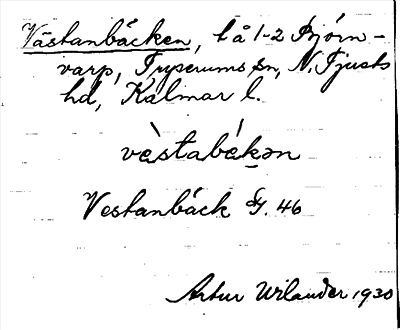 Västanbäcken, t å 1-2 Björn-
varp, Tryserums sn, N. Tjusts
hd, Kalmar l.
vèstabékən
Vestanbäck Gj. 46
Artur Wilander 1930